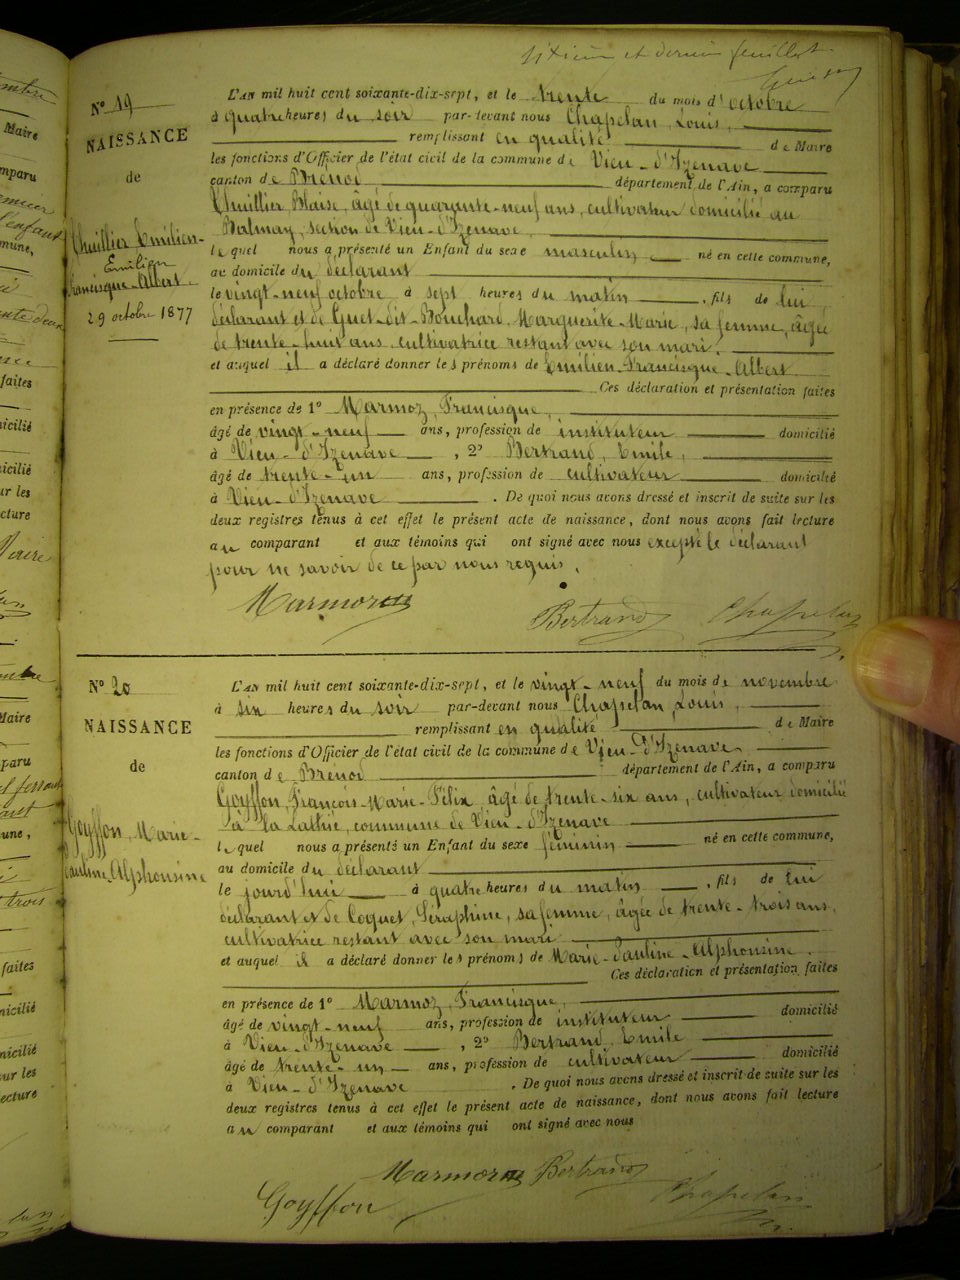 sixième et dernier feuillet
N° 19
NAISSANCE
de
Thuillier Emilien-
Emilien
Francisque-Albert
29 octobre 1877
L'AN mil huit cent soixante-dix-sept, et le trente du mois d'octobre
à quatre heures du soir par-devant nous Chapelan, Louis,
remplissant en qualité de Maire
les fonctions d'Officier de l'état civil de la commune de Vieu-d'Izenave
canton de Brénod département de l'Ain, a comparu
Thuillier, Blaise, âgé de quarante-neuf ans, cultivateur domicilié au
Balmay, section de Vieu-d'Izenave,
lequel nous a présenté un Enfant du sexe masculin né en cette commune,
au domicile du déclarant
le vingt-neuf octobre à sept heures du matin, fils de lui
déclarant et de Guet-dit-Bouchard, Marguerite-Marie, sa femme, âgée
de trente-huit ans, cultivatrice restant avec son mari.
et auquel il a déclaré donner les prénoms de Emilien-Francisque-Albert
Ces déclaration et présentation faites
en présence de 1° Marmoz, Francisque,
âgé de vingt-neuf ans, profession de instituteur domicilié
à Vieu-d'Izenave, 2° Bertrand, Emile,
âgé de trente-un ans, profession de cultivateur domicilié
à Vieu-d'Izenave. De quoi nous avons dressé et inscrit de suite sur les
deux registres tenus à cet effet le présent acte de naissance, dont nous avons fait lecture
au comparant et aux témoins qui ont signé avec nous excepté le déclarant
pour ne savoir de ce par nous requis.
Marmoz
Bertrand Chapelan
N° 20
NAISSANCE
de
Goyffon Marie-
Pauline Alphonsine
L'AN mil huit cent soixante-dix-sept, et le vingt-neuf du mois de novembre
à six heures du soir par-devant nous Chapelan, Louis,
remplissant en qualité de Maire
les fonctions d'Officier de l'état civil de la commune de Vieu-d'Izenave
canton de Brénod département de l'Ain, a comparu
Goyffon, François-Marie-Félix, âgé de trente-six ans, cultivateur domicilié
à la commune de Vieu-d'Izenave
lequel nous a présenté un Enfant du sexe féminin né en cette commune,
au domicile du déclarant
le jourd'hui à quatre heures du matin, fils de lui
déclarant et de Coquet, Séraphine, sa femme, âgée de trente-trois ans,
cultivatrice restant avec son mari
et auquel il a déclaré donner les prénoms de Marie-Pauline-Alphonsine.
Ces déclaration et présentation faites
en présence de 1° Marmoz, Francisque,
âgé de vingt-neuf ans, profession de instituteur domicilié
à Vieu-d'Izenave, 2° Bertrand, Emile
âgé de trente-un ans, profession de cultivateur domicilié
à Vieu-d'Izenave. De quoi nous avons dressé et inscrit de suite sur les
deux registres tenus à cet effet le présent acte de naissance, dont nous avons fait lecture
au comparant et aux témoins qui ont signé avec nous
Marmoz Bertrand
Goyffon Chapelan